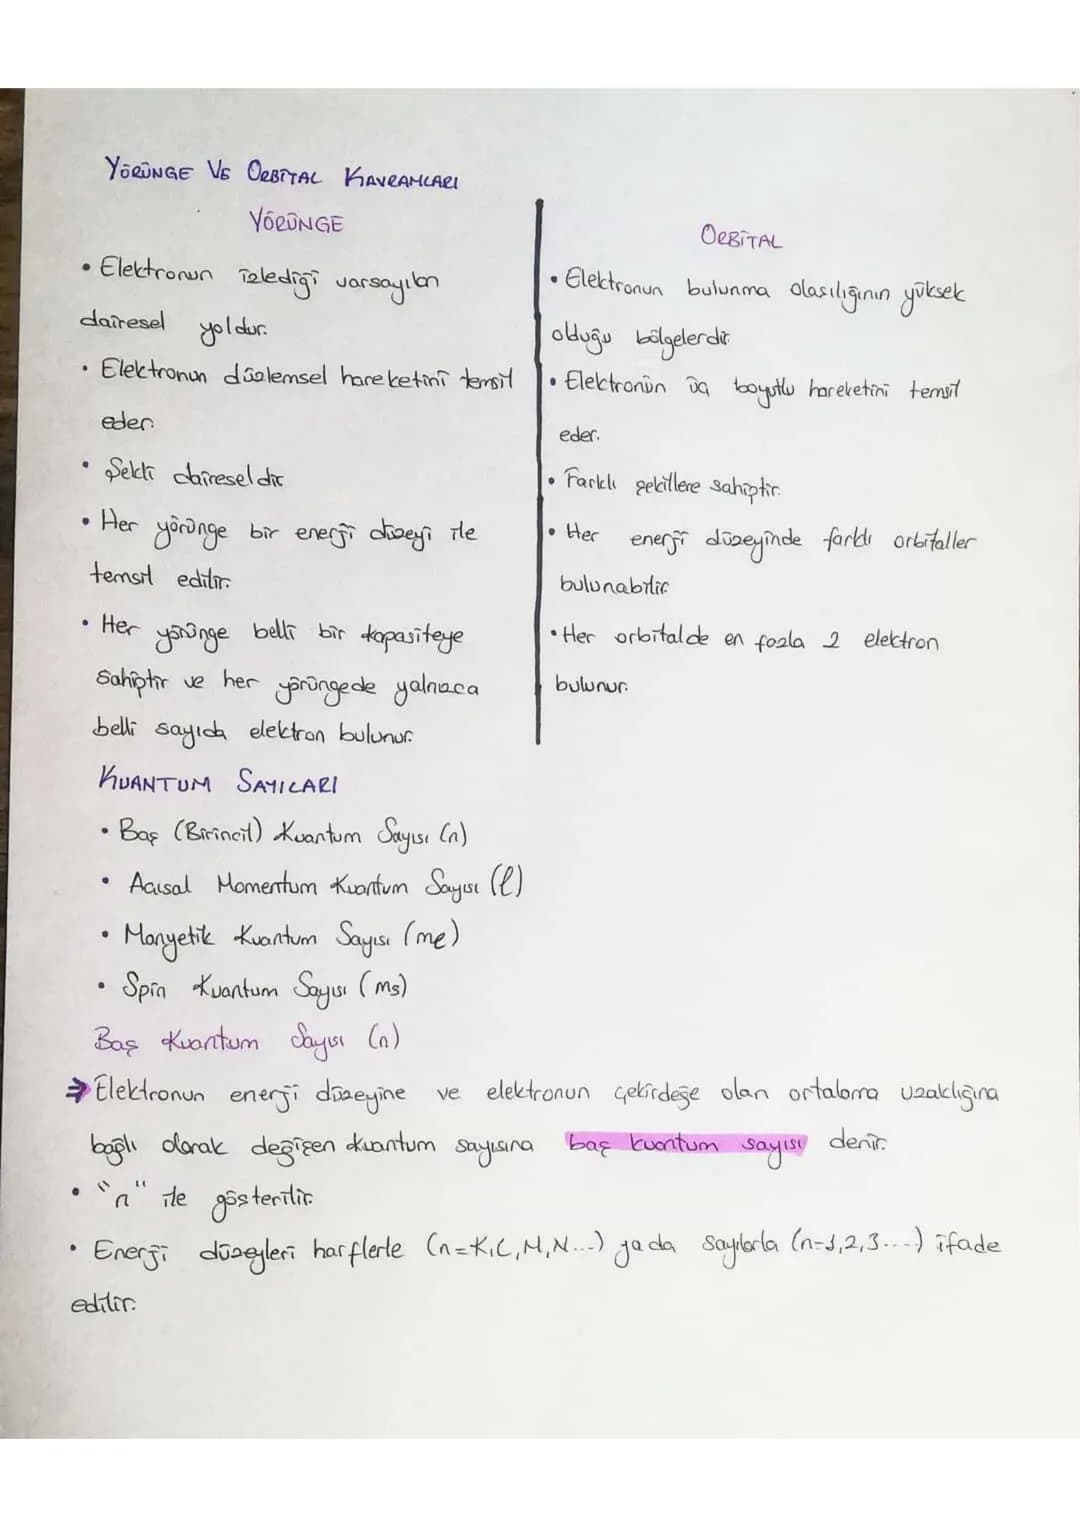 YÖRÜNGE VE ORBİTAL KAVRAMLARI
YÖRÜNGE
• Elektronun izlediği varsayılan
dairesel yoldur.
• Elektronun düzlemsel hareketini temsil
eder.
• Şekli daireseldir
• Her yörünge bir enerji düzeyi ile
temsil edilir.
• Her yörünge belli bir kapasiteye
sahiptir ve her yörüngede yalnızca
belli sayıda elektron bulunur.
ORBİTAL
• Elektronun bulunma olasılığının yüksek
olduğu bölgelerdir.
• Elektronün üç boyutlu hareketini temsil
eder.
• Farklı şekillere sahiptir.
• Her enerji düzeyinde farklı orbitaller
bulunabilir
• Her orbitalde en fazla 2 elektron
bulunur.
KUANTUM SAYILARI
• Baş (Birincil) Kuantum Sayısı (n)
• Açısal Momentum Kuantum Sayısı (ℓ)
• Manyetik Kuantum Sayısı (mℓ)
• Spin Kuantum Sayısı (ms)
Baş Kuantum Sayısı (n)
⇒ Elektronun enerji düzeyine ve elektronun çekirdeğe olan ortalama uzaklığına
bağlı olarak değişen kuantum sayısına baş kuantum sayısı denir.
• "n" ile gösterilir.
• Enerji düzeyleri harflerle (n=K,L,M,N...) ya da sayılarla (n=1,2,3....) ifade
edilir.